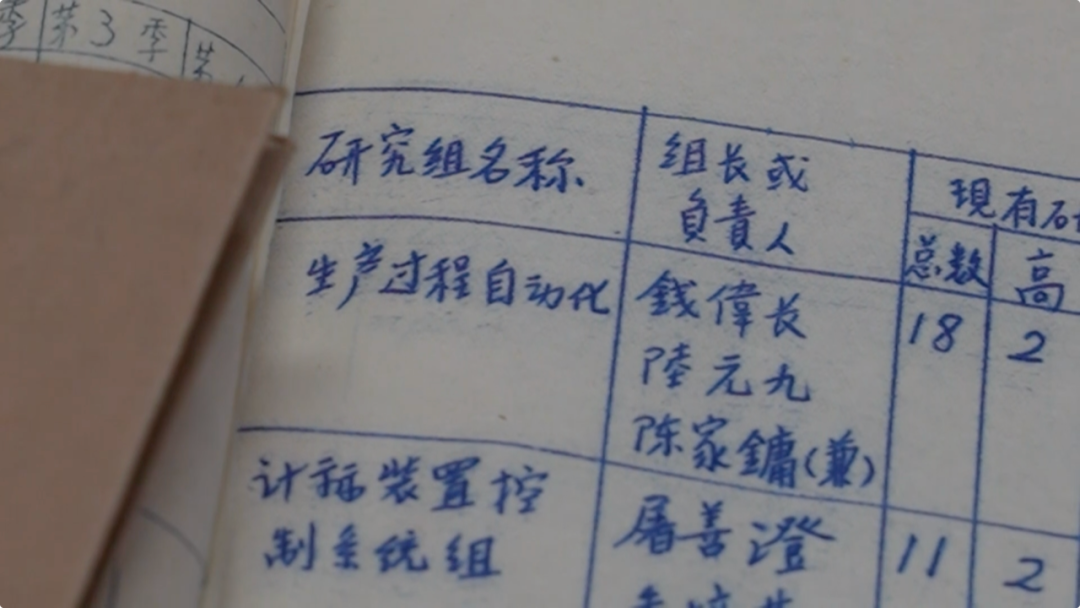 季 第3季 第
研究组名称
组长或
负責人
現有研
总数 高
生产过程自动化
錢偉长 18 2
陸元九
陈家鏞(兼)
计标装置控
制系统组
屠善澄 11 2